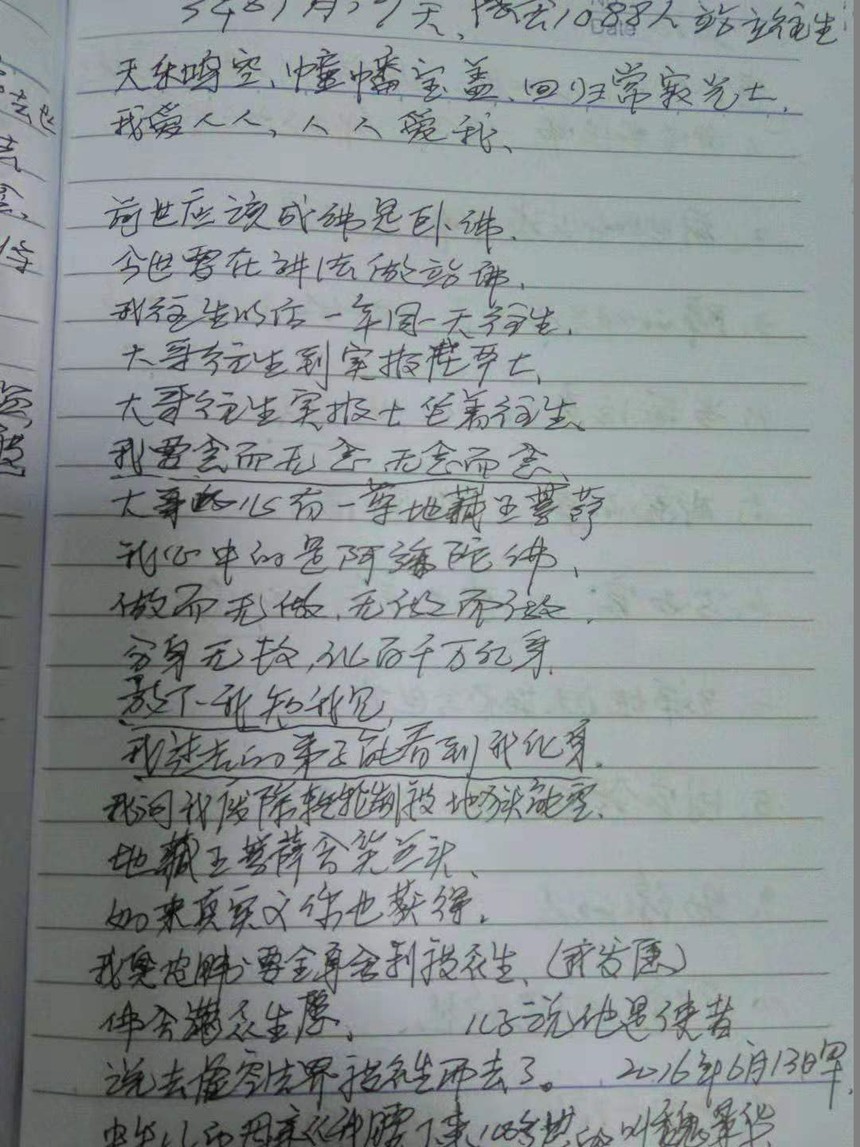 天乐鸣空、幢幡宝盖、回归常寂光土、
我爱人人、人人爱我、
前世应该成佛是卧佛、
今世要在讲法做站佛、
我往生以后一年同一天往生、
大哥往生到实报庄严土、
大哥往生实报土坐着往生、
我要念而无念 无念而念、
大哥 有一尊地藏王菩萨
我心中的是阿弥陀佛、
做而无做、无做而做、
分身无数，化百千万亿身、
放下我知我见、
我过去的弟子能看到我化身、
我问我废除轮制 地狱能空、
地藏王菩萨含笑点头、
如来真实义你也获得。
我 要全身舍利 众生、（我发愿）
佛会满众生愿、 儿子说他是使者
说去虚空法界 众生而去了。 2016年6月13日早